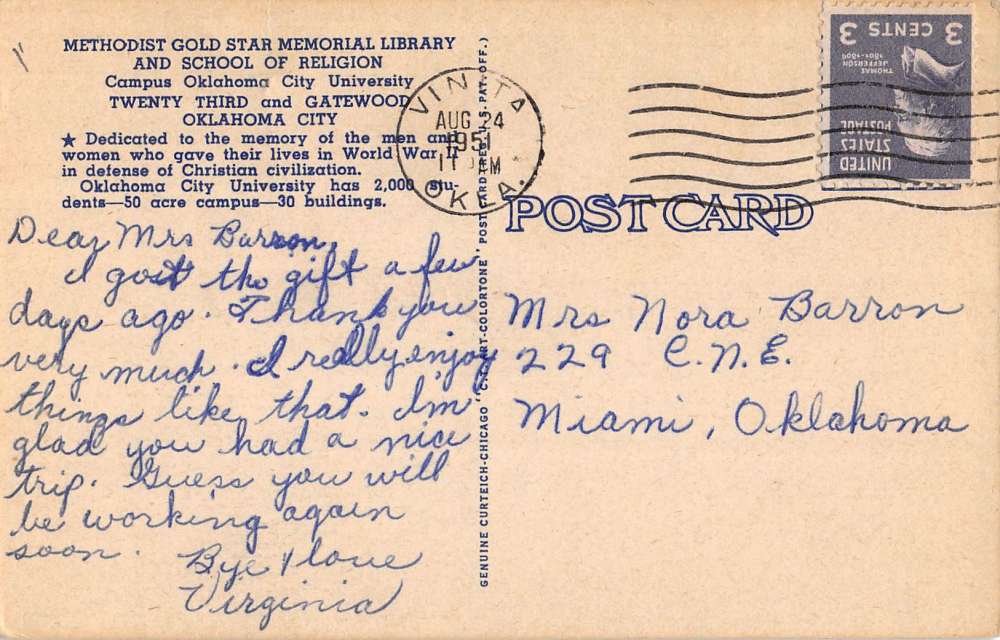 METHODIST GOLD STAR MEMORIAL LIBRARY
AND SCHOOL OF RELIGION
Campus Oklahoma City University
TWENTY THIRD and GATEWOOD
OKLAHOMA CITY
★ Dedicated to the memory of the men and
women who gave their lives in World War II
in defense of Christian civilization.
Oklahoma City University has 2,000 stu-
dents—50 acre campus—30 buildings.
Dear Mrs Barron,
I got the gift a few
days ago. Thank you
very much. I really enjoy
things like that. I'm
glad you had a nice
trip. Guess you will
be working again
soon.
Bye & love
Virginia
GENUINE CURTEICH-CHICAGO "C.T. ART-COLORTONE" POST CARD (REG. U.S. PAT. OFF.)
VINITA
AUG 24
1951
11 PM
OKLA.
UNITED
STATES
POSTAGE
THOMAS
JEFFERSON
1801-1809
3 CENTS 3
POST CARD
Mrs Nora Barron
229 C.N.E.
Miami, Oklahoma